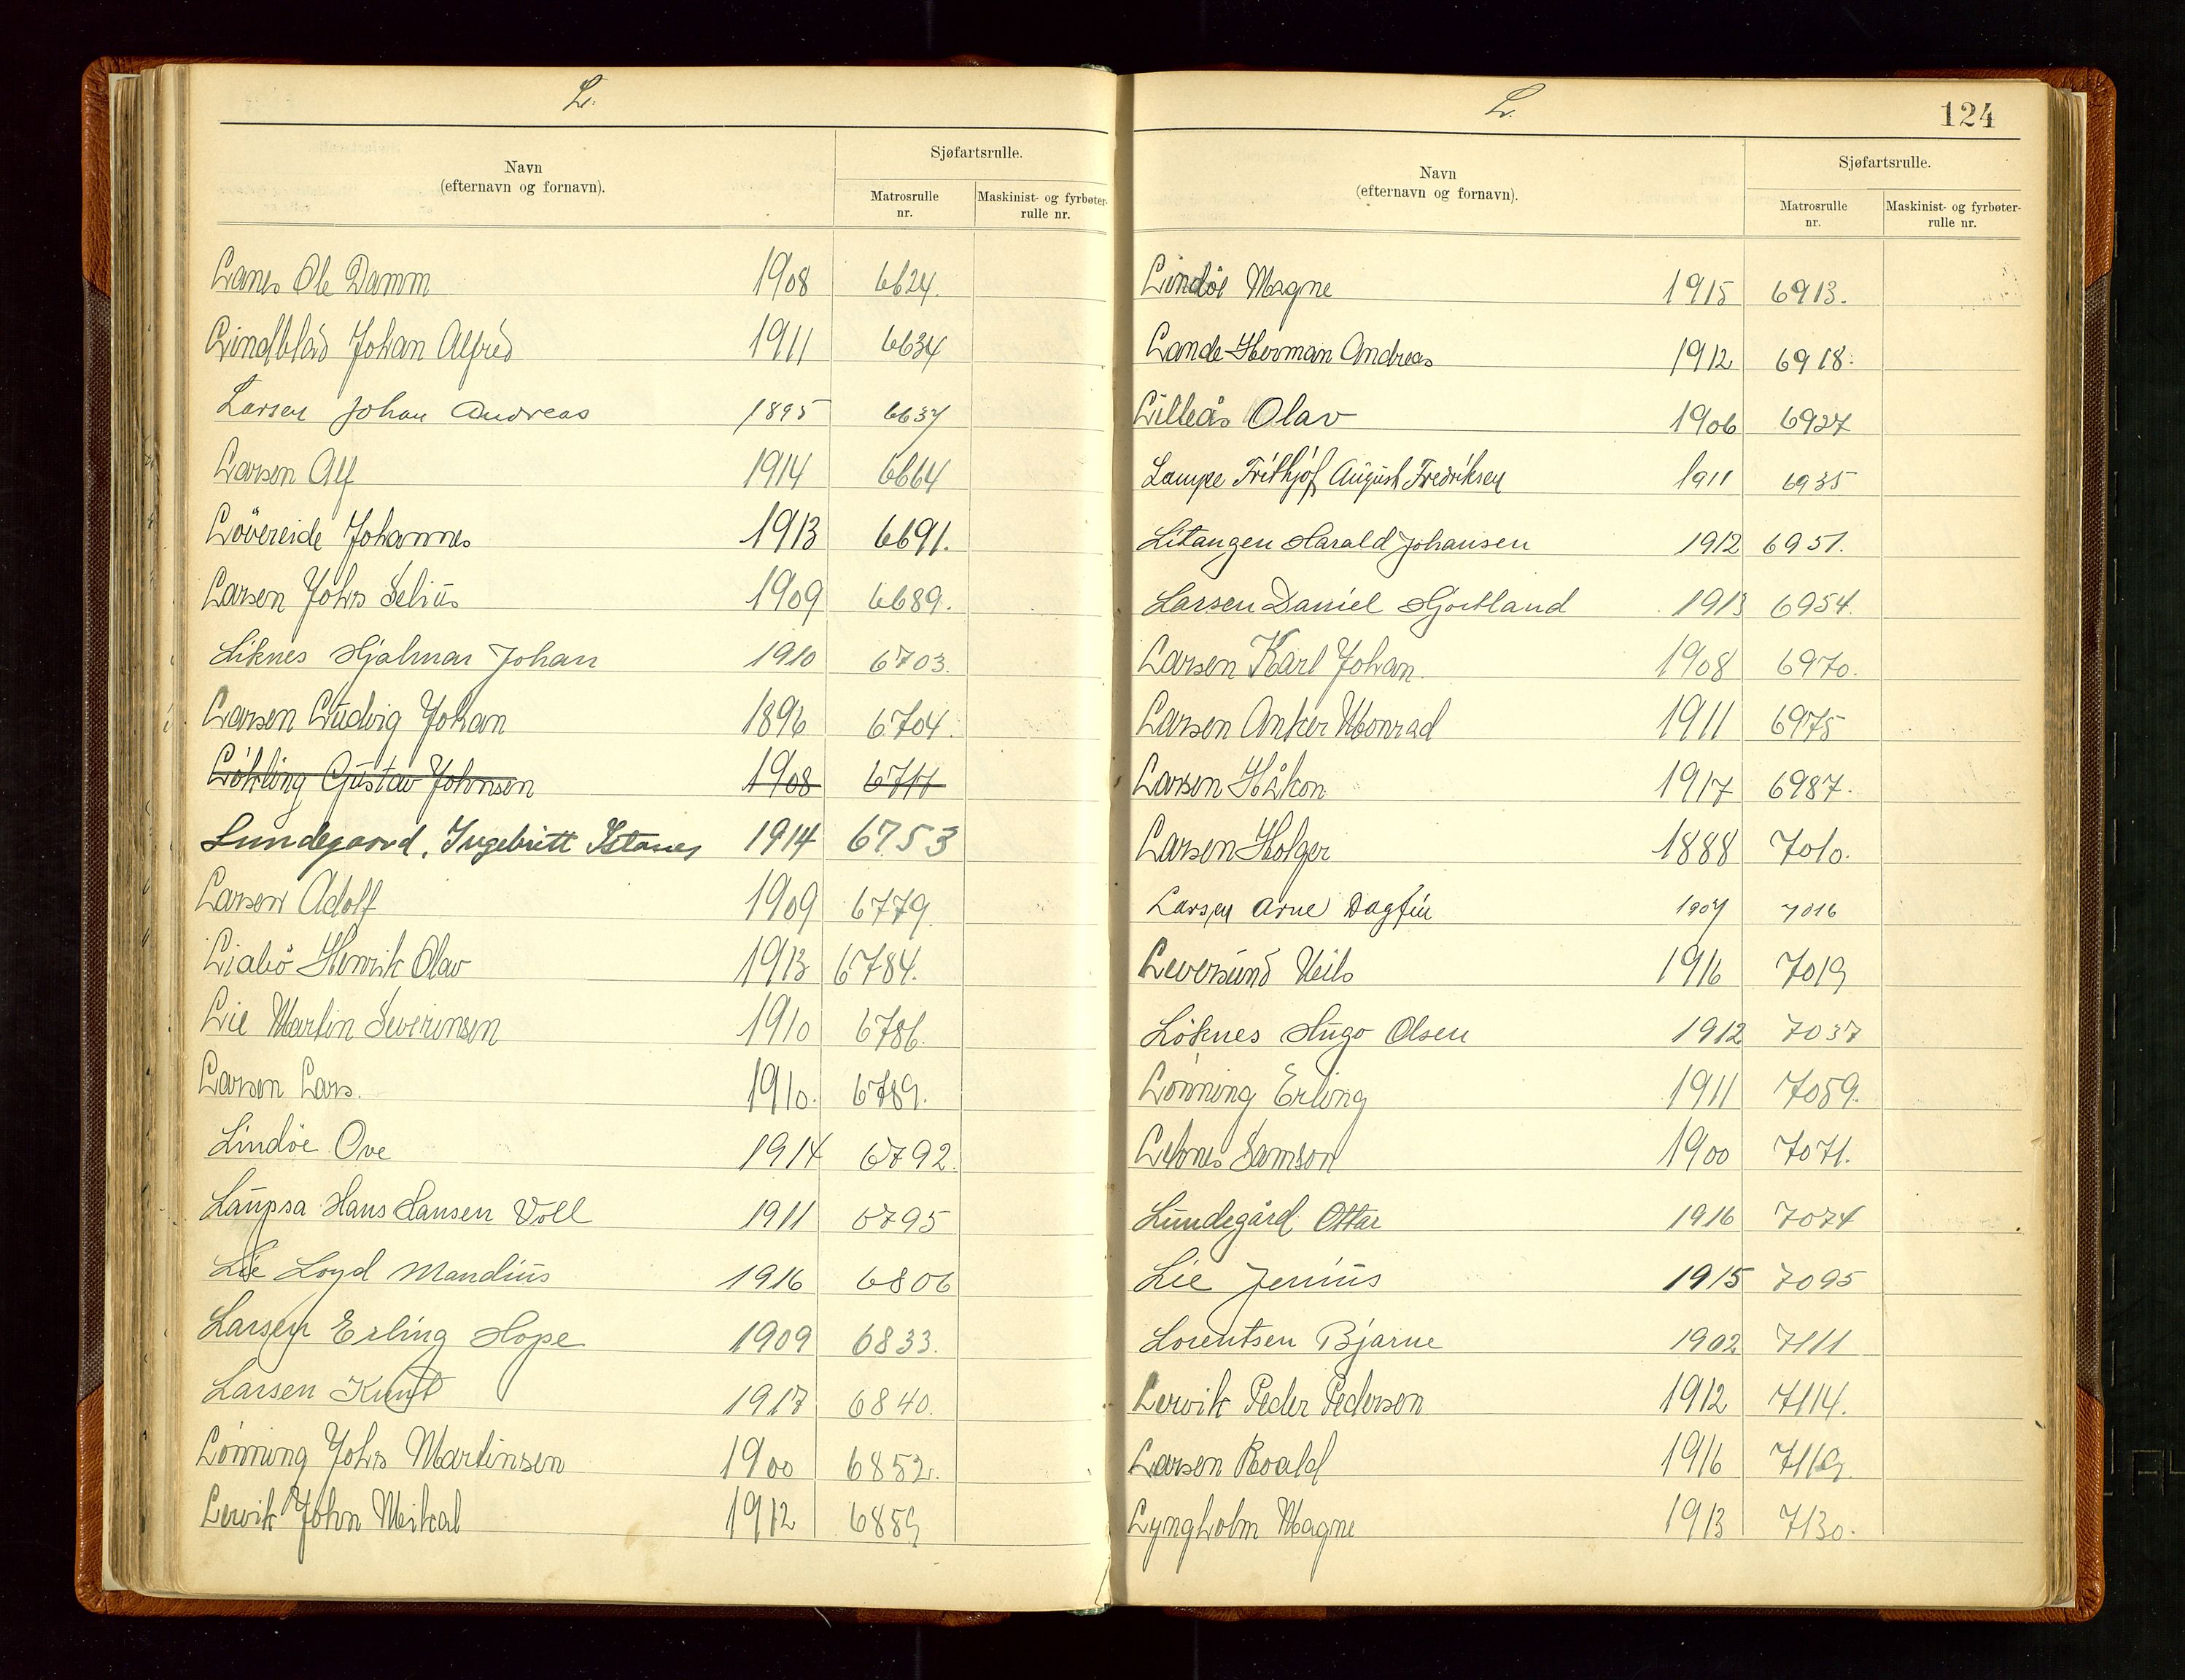 L.
Navn
(efternavn og fornavn).
Sjøfartsrulle.
Matrosrulle nr.
Maskinist- og fyrbøter-rulle nr.
Lanes Ole Damm 1908 6624.
Lindblad Johan Alfred 1911 6634
Larsen Johan Andreas 1895 6637
Larsen Alf 1914 6664
Lövereide Johannes 1913 6691.
Larsen Johs Selius 1909 6689.
Liknes Hjalmar Johan 1910 6703.
Larsen Ludvig Johan 1896 6704.
Löhling Gustav Johnsen 1908
Lundegaard, Ingebritt 1914 6753
Larsen Adolf 1909 6779.
Liabö Henrik Olav 1913 6784.
Lie Martin Severinsen 1910 6786.
Larsen Lars. 1910. 6789.
Lindöe Ove 1914 6792.
Laupsa Hans Hansen Voll 1911 6795
Lie Loyd Mandius 1916 6806
Larsen Erling Hope 1909 6833.
Larsen Knut 1917 6840.
Lönning Johs Martinsen 1900 6852.
Lervik John Mikal 1912 6859
L.
124
Navn
(efternavn og fornavn).
Sjøfartsrulle.
Matrosrulle nr.
Maskinist- og fyrbøter-rulle nr.
Lindöe Magne 1915 6913.
Lande Herman Andreas 1912 6918.
Lilleås Olav 1906 6927
Lampe Frithjof August Fredriksen 1911 6935
Litangen Harald Johansen 1912 6951.
Larsen Daniel Hjortland 1913 6954.
Larsen Karl Johan. 1908 6970.
Larsen Anker Monrad 1911 6975
Larsen Håkon 1917 6987.
Larsen Holger 1888 7010.
Larsen Arne Dagfin 1907 7016
Leversund Neils 1916 7019
Löknes Hugo Olsen 1912 7037
Lönning Erling 1911 7059.
Samson 1900 7071.
Lundegård Ottar 1916 7074
Lie Jenius 1915 7095
Lorentsen Bjarne 1902 7111
Lervik Peder Pedersen 1912 7114.
Larsen Roald 1916 7119.
Lyngholm Magne 1913 7130.